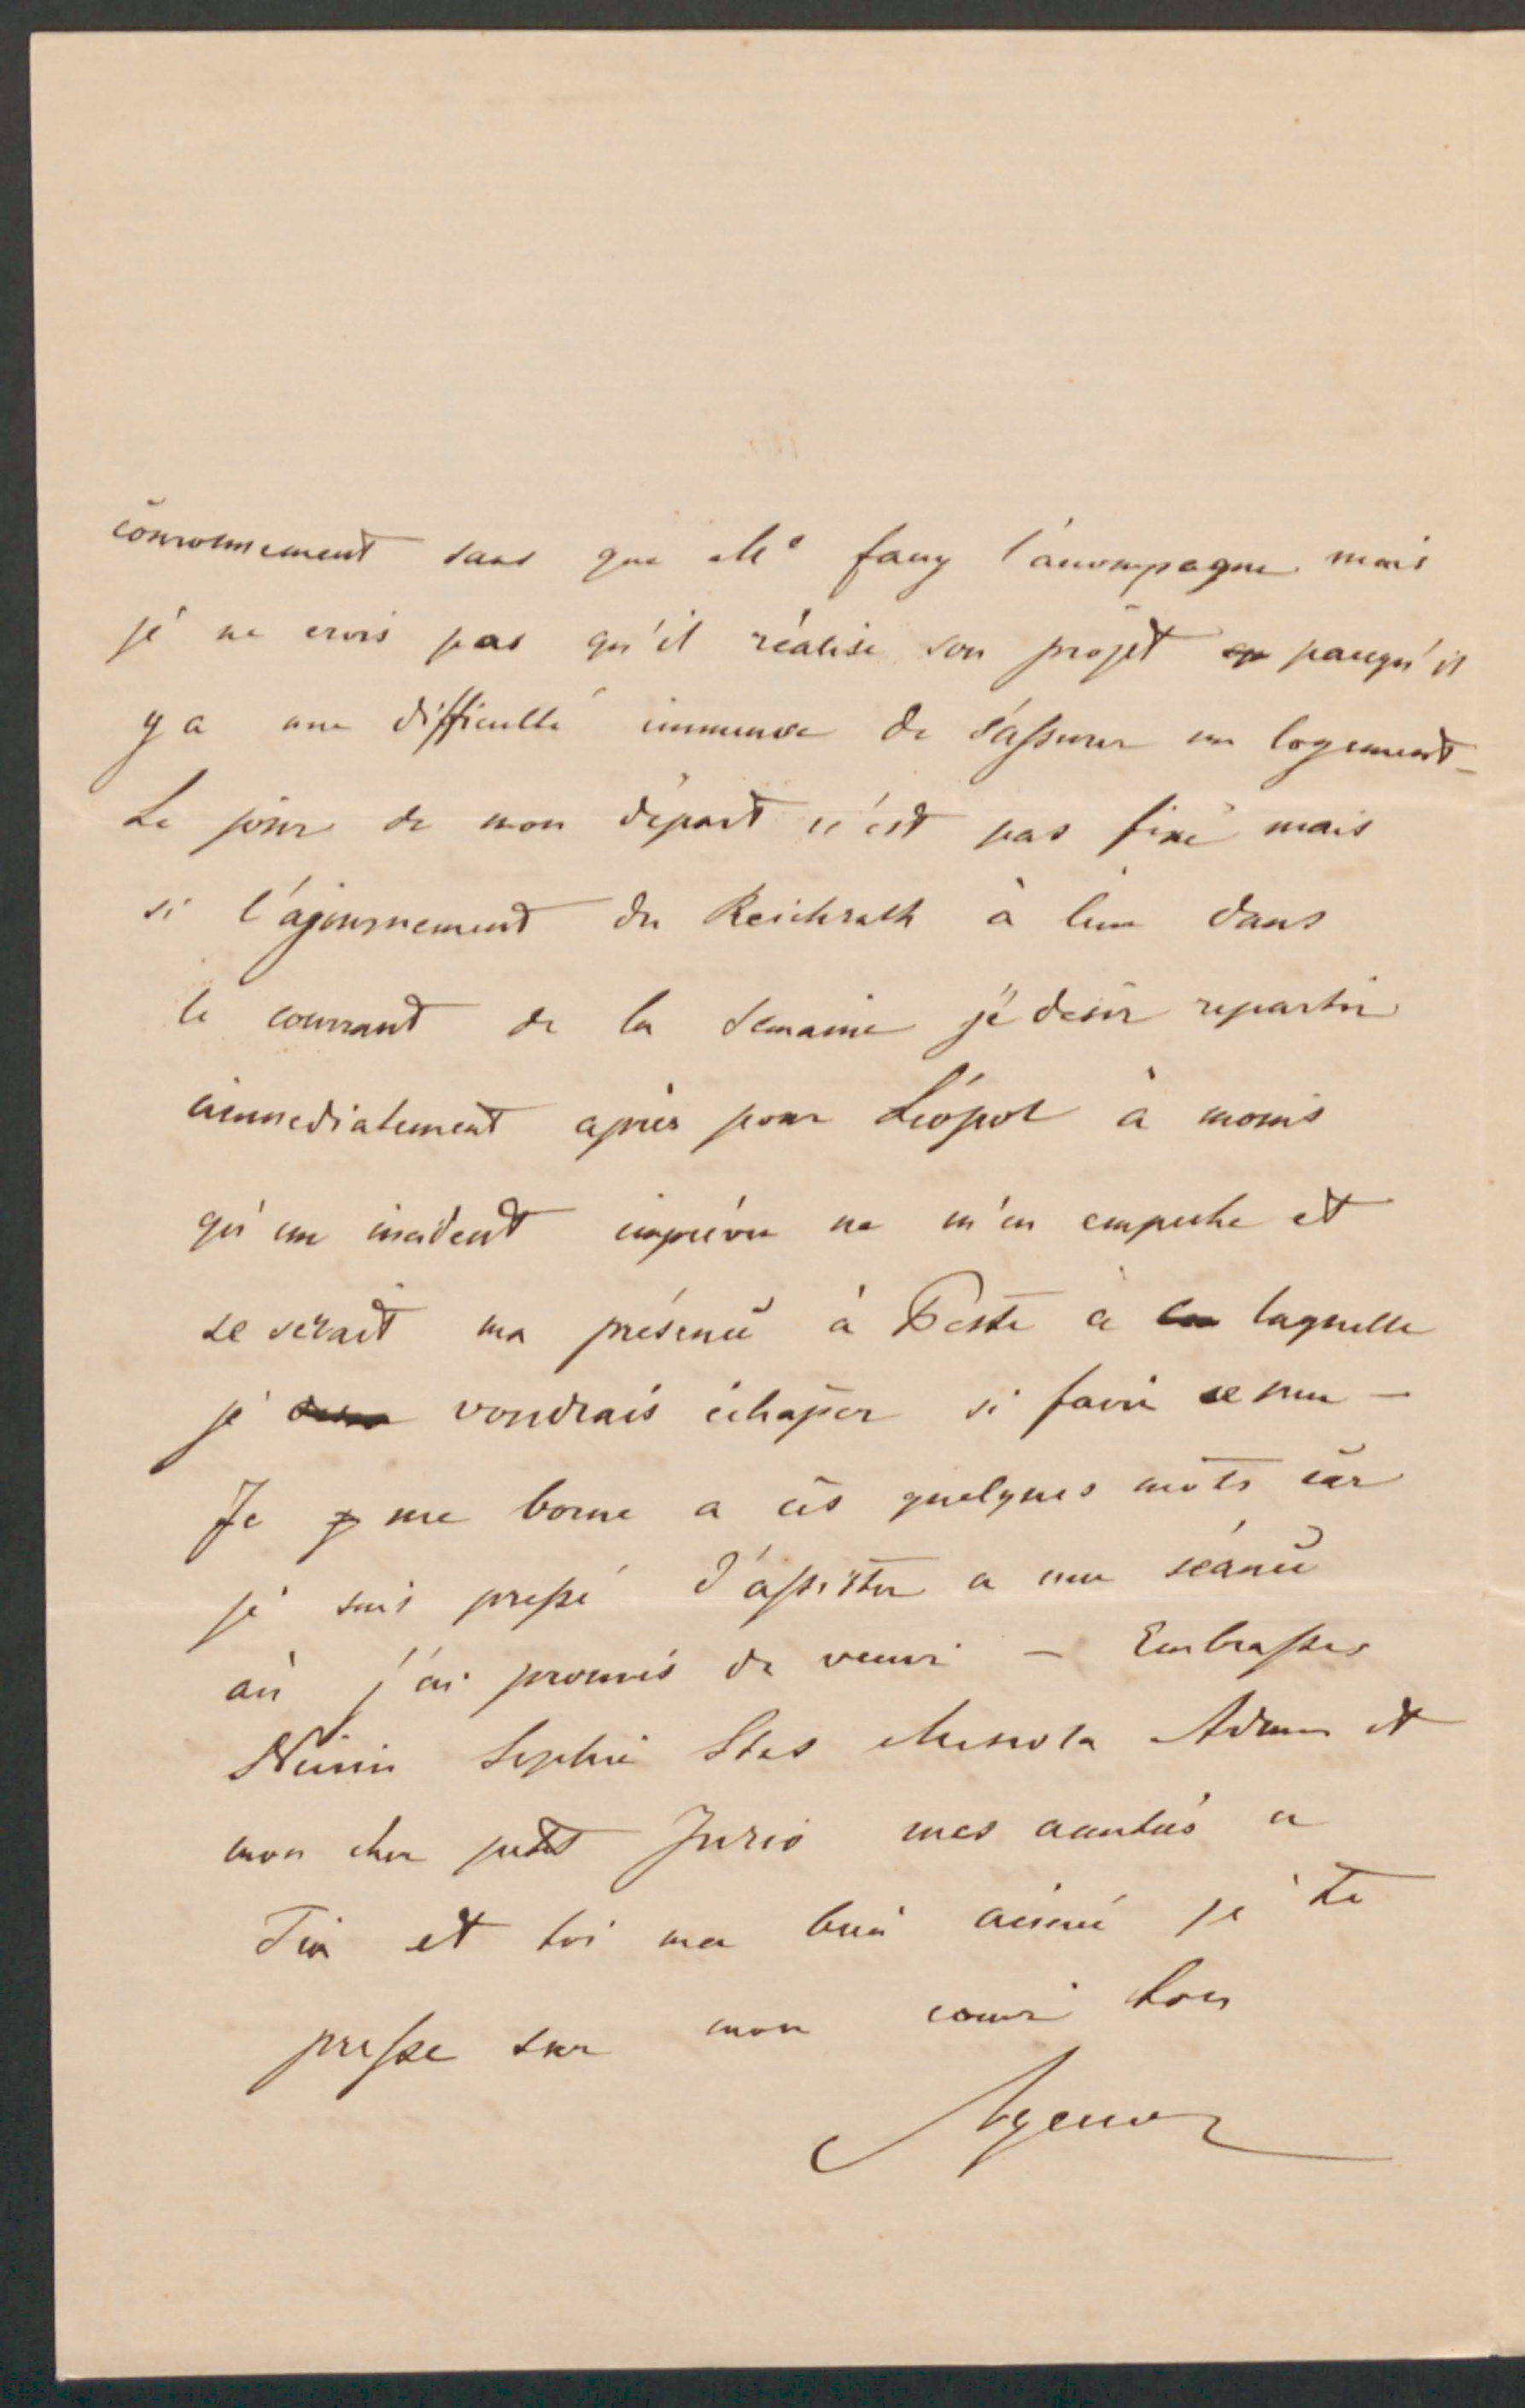 couronnement sans que Me fany l'acompagne mais
je ne crois pas qu'il réalise son projet parcqu'il
y a une difficulté immense de s'assurer un logement –
Le jour de mon départ n'est pas fixé mais
si l'ajournement du Reichrath à lieu dans
le courrant de la semaine je desir repartir
immediatement après pour Léopol à moins
qu'un incident imprévu ne m'en empeche et
se serait ma présence à Peste à laquelle
je voudrais échaper si faire se peu –
Je me borne a ces quelques mots car
je suis pressé d'assister a une séance
où j'ai promis de venir – Embrasses
Ninin Sophie Stas Adam et
mon cher petit Jurio mes amitiés a
Tia et toi ma bien aimée je te
presse sur mon coeur ton
Agenor